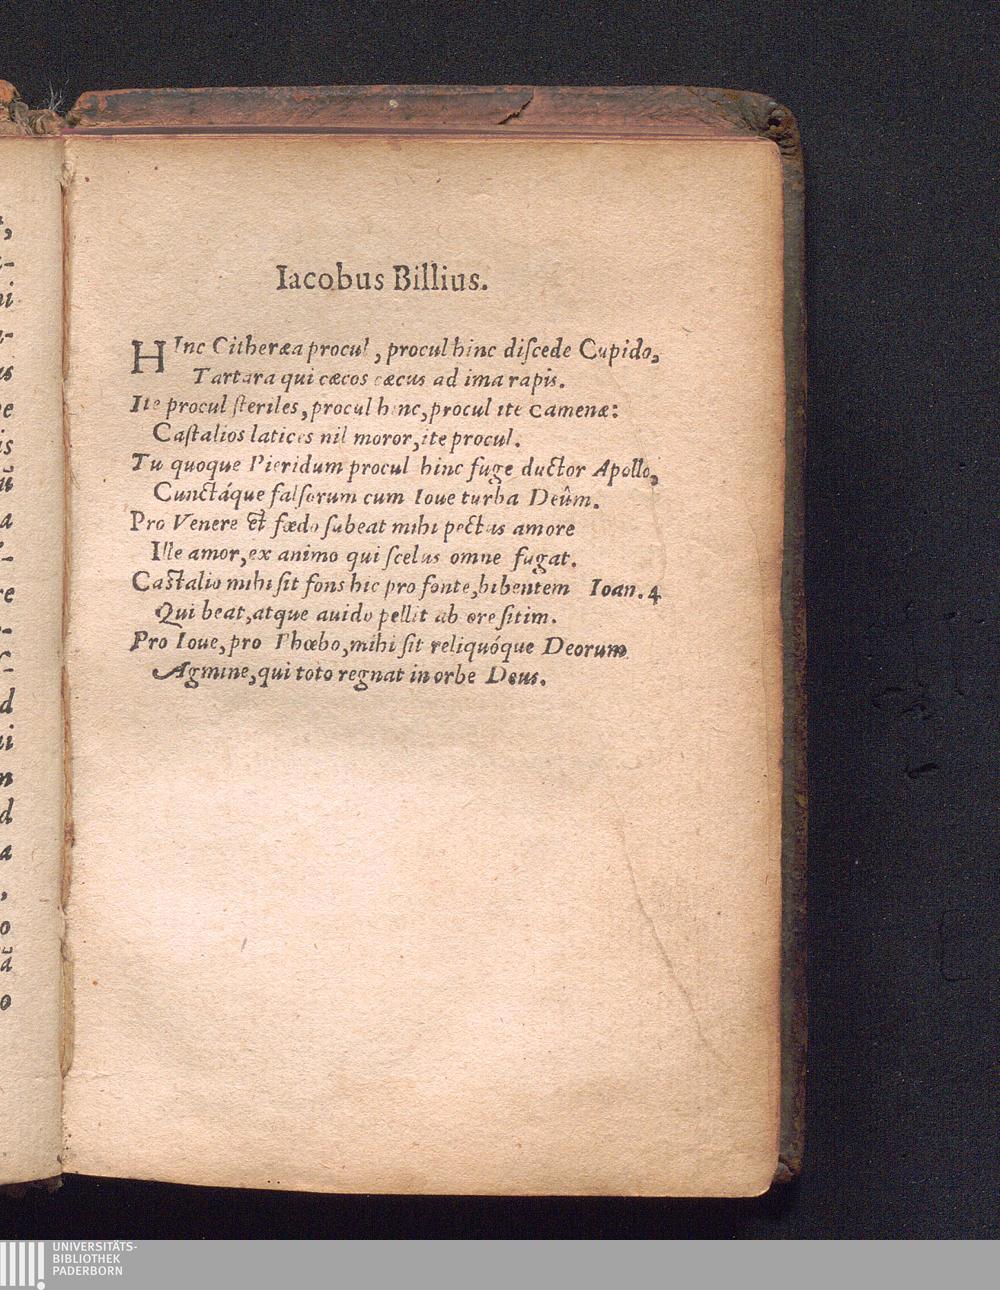 Iacobus Billius.
HInc Citheræa procul, procul hinc diſcede Cupido,
Tartara qui cæcos cæcus ad ima rapis.
Ite procul ſteriles, procul hinc, procul ite Camenæ:
Caſtalios latices nil moror, ite procul.
Tu quoque Pieridum procul hinc fuge ductor Apollo,
Cunctáque falſorum cum Ioue turba Deûm.
Pro Venere & fœdo ſubeat mihi pectus amore
Ille amor, ex animo qui ſcelus omne fugat.
Caſtalio mihi ſit fons hic pro fonte, bibentem Ioan. 4
Qui beat, atque auido pellit ab ore ſitim.
Pro Ioue, pro Phœbo, mihi ſit reliquóque Deorum
Agmine, qui toto regnat in orbe Deus.
UNIVERSITÄTS-
BIBLIOTHEK
PADERBORN